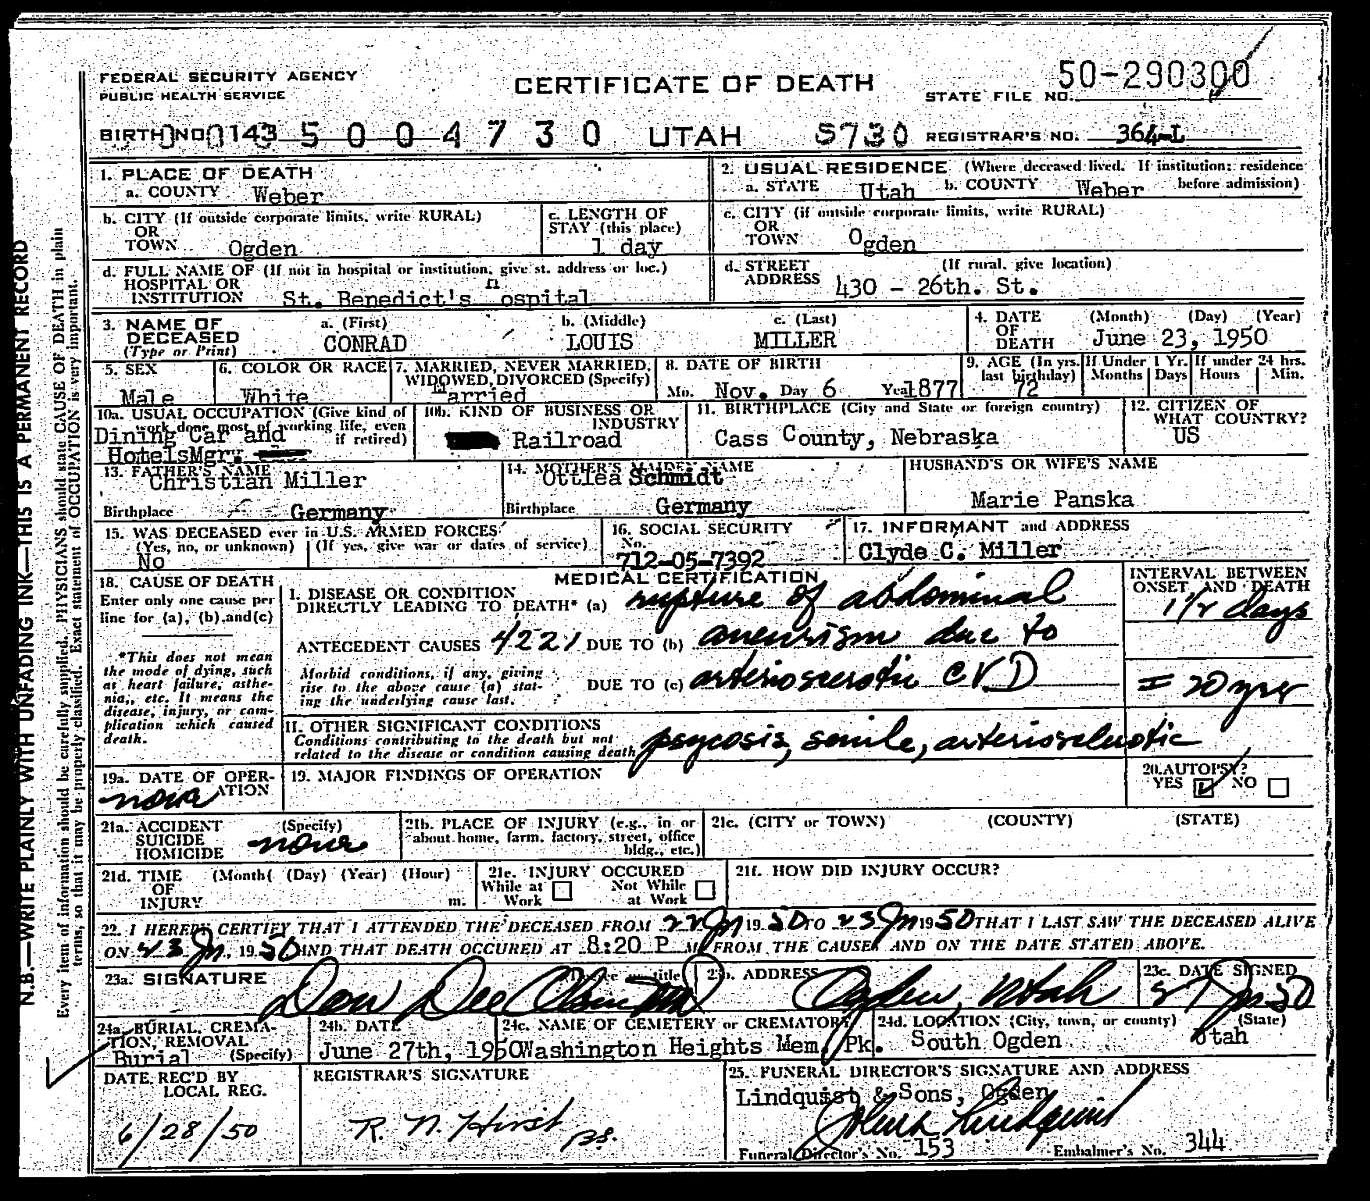 FEDERAL SECURITY AGENCY
PUBLIC HEALTH SERVICE
CERTIFICATE OF DEATH
STATE FILE NO. 50-290300
BIRTH NO. 0 0143 5 0 0 4 7 3 0 UTAH S730 REGISTRAR'S NO. 364-L
1. PLACE OF DEATH
a. COUNTY Weber
2. USUAL RESIDENCE (Where deceased lived. If institution: residence before admission)
a. STATE Utah b. COUNTY Weber
b. CITY (If outside corporate limits, write RURAL)
OR
TOWN Ogden
c. LENGTH OF
STAY (this place)
1 day
c. CITY (if outside corporate limits, write RURAL)
OR
TOWN Ogden
d. FULL NAME OF (If not in hospital or institution, give st. address or loc.)
HOSPITAL OR
INSTITUTION St. Benedict's Hospital
d. STREET (If rural, give location)
ADDRESS 430 - 26th. St.
3. NAME OF DECEASED
(Type or Print)
a. (First) b. (Middle) c. (Last)
CONRAD LOUIS MILLER
4. DATE OF DEATH (Month) (Day) (Year)
June 23, 1950
5. SEX
Male
6. COLOR OR RACE
White
7. MARRIED, NEVER MARRIED,
WIDOWED, DIVORCED (Specify)
Married
8. DATE OF BIRTH
Mo. Nov. Day 6 Year 1877
9. AGE (In yrs. last birthday) If Under 1 Yr. If under 24 hrs.
72 Months Days Hours Min.
10a. USUAL OCCUPATION (Give kind of
work done most of working life, even
if retired)
Dining Car and
HotelsMgr.
10b. KIND OF BUSINESS OR
INDUSTRY
Railroad
11. BIRTHPLACE (City and State or foreign country)
Cass County, Nebraska
12. CITIZEN OF
WHAT COUNTRY?
US
13. FATHER'S NAME
Christian Miller
Birthplace Germany
14. MOTHER'S MAIDEN NAME
Ottlea Schmidt
Birthplace Germany
HUSBAND'S OR WIFE'S NAME
Marie Panska
15. WAS DECEASED ever in U.S. ARMED FORCES
(Yes, no, or unknown) (If yes, give war or dates of service)
No
16. SOCIAL SECURITY
No.
712-05-7392
17. INFORMANT and ADDRESS
Clyde C. Miller
18. CAUSE OF DEATH
Enter only one cause per
line for (a), (b), and (c)
*This does not mean
the mode of dying, such
as heart failure, asthe-
nia, etc. It means the
disease, injury, or com-
plication which caused
death.
MEDICAL CERTIFICATION
I. DISEASE OR CONDITION
DIRECTLY LEADING TO DEATH* (a) rupture of abdominal
ANTECEDENT CAUSES 4221 DUE TO (b) aneurism due to
Morbid conditions, if any, giving
rise to the above cause (a) stat-
ing the underlying cause last.
DUE TO (c) arteriosclerotic CVD
INTERVAL BETWEEN
ONSET AND DEATH
1 1/2 days
= 20 yrs
II. OTHER SIGNIFICANT CONDITIONS
Conditions contributing to the death but not
related to the disease or condition causing death
psycosis, senile, arteriosclerotic
19a. DATE OF OPER-
ATION
none
19. MAJOR FINDINGS OF OPERATION
20. AUTOPSY?
YES NO
21a. ACCIDENT (Specify)
SUICIDE
HOMICIDE none
21b. PLACE OF INJURY (e.g., in or
about home, farm, factory, street, office
bldg., etc.)
21c. (CITY or TOWN) (COUNTY) (STATE)
21d. TIME (Month) (Day) (Year) (Hour)
OF
INJURY m.
21e. INJURY OCCURED
While at Work Not While at Work
21f. HOW DID INJURY OCCUR?
22. I HEREBY CERTIFY THAT I ATTENDED THE DECEASED FROM 22 Jn 1950 TO 23 Jn 1950 THAT I LAST SAW THE DECEASED ALIVE
ON 23 Jn, 1950 AND THAT DEATH OCCURED AT 8:20 P M FROM THE CAUSE AND ON THE DATE STATED ABOVE.
23a. SIGNATURE (Degree or title)
Don Dee Olsen MD
23b. ADDRESS
Ogden, Utah
23c. DATE SIGNED
27 Jn 50
24a. BURIAL, CREMA-
TION, REMOVAL
Burial (Specify)
24b. DATE
June 27th, 1950
24c. NAME OF CEMETERY or CREMATORY
Washington Heights Mem. Pk.
24d. LOCATION (City, town, or county) (State)
South Ogden Utah
DATE REC'D BY
LOCAL REG.
6/28/50
REGISTRAR'S SIGNATURE
R. N. Hirst
25. FUNERAL DIRECTOR'S SIGNATURE AND ADDRESS
Lindquist & Sons, Ogden
Funeral Director's No. 153 Embalmer's No. 344
N.B.—WRITE PLAINLY WITH UNFADING INK—THIS IS A PERMANENT RECORD
Every item of information should be carefully supplied. PHYSICIANS should state CAUSE OF DEATH in plain
terms, so that it may be properly classified. Exact statement of OCCUPATION is very important.